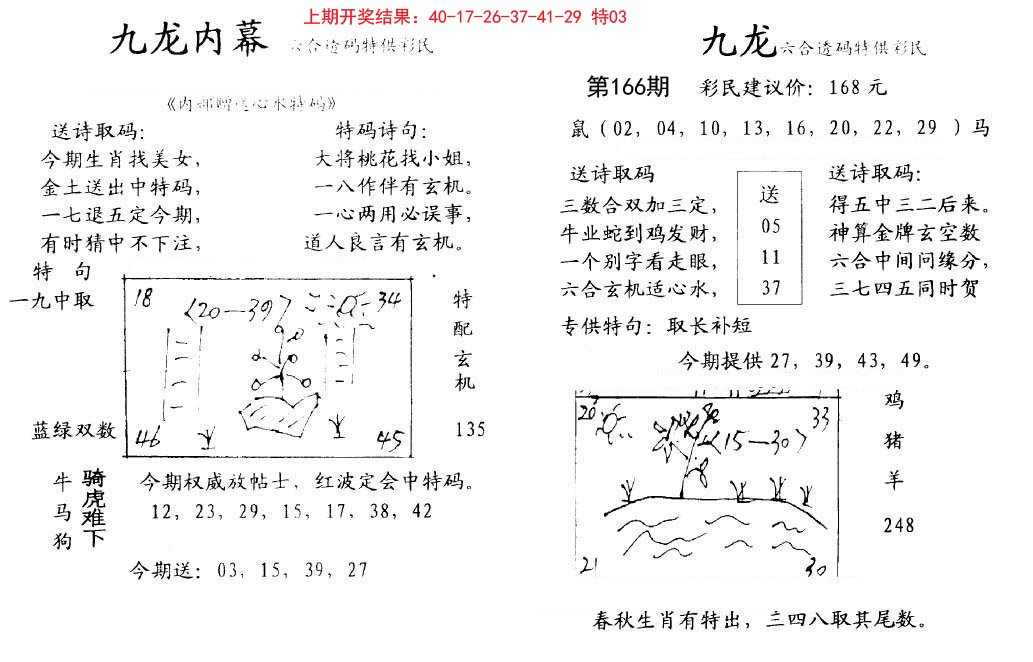 上期开奖结果：40-17-26-37-41-29 特03
九龙内幕 六合透码特供彩民
《内部赠送心水特码》
送诗取码：
今期生肖找美女，
金土送出中特码，
一七退五定今期，
有时猜中不下注，
特码诗句：
大将桃花找小姐，
一八作伴有玄机。
一心两用必误事，
道人良言有玄机。
特 句
一九中取
蓝绿双数
18
〈20—39〉
34
46
45
特
配
玄
机
135
牛
马
狗
骑
虎
难
下
今期权威放帖士，红波定会中特码。
12，23，29，15，17，38，42
今期送：03，15，39，27
九龙六合透码特供彩民
第166期 彩民建议价：168 元
鼠（02，04，10，13，16，20，22，29 ）马
送诗取码
三数合双加三定，
牛业蛇到鸡发财，
一个别字看走眼，
六合玄机适心水，
送
05
11
37
送诗取码：
得五中三二后来。
神算金牌玄空数
六合中间问缘分，
三七四五同时贺
专供特句：取长补短
今期提供 27，39，43，49。
20
33
〈15—30〉
21
30
鸡
猪
羊
248
春秋生肖有特出，三四八取其尾数。